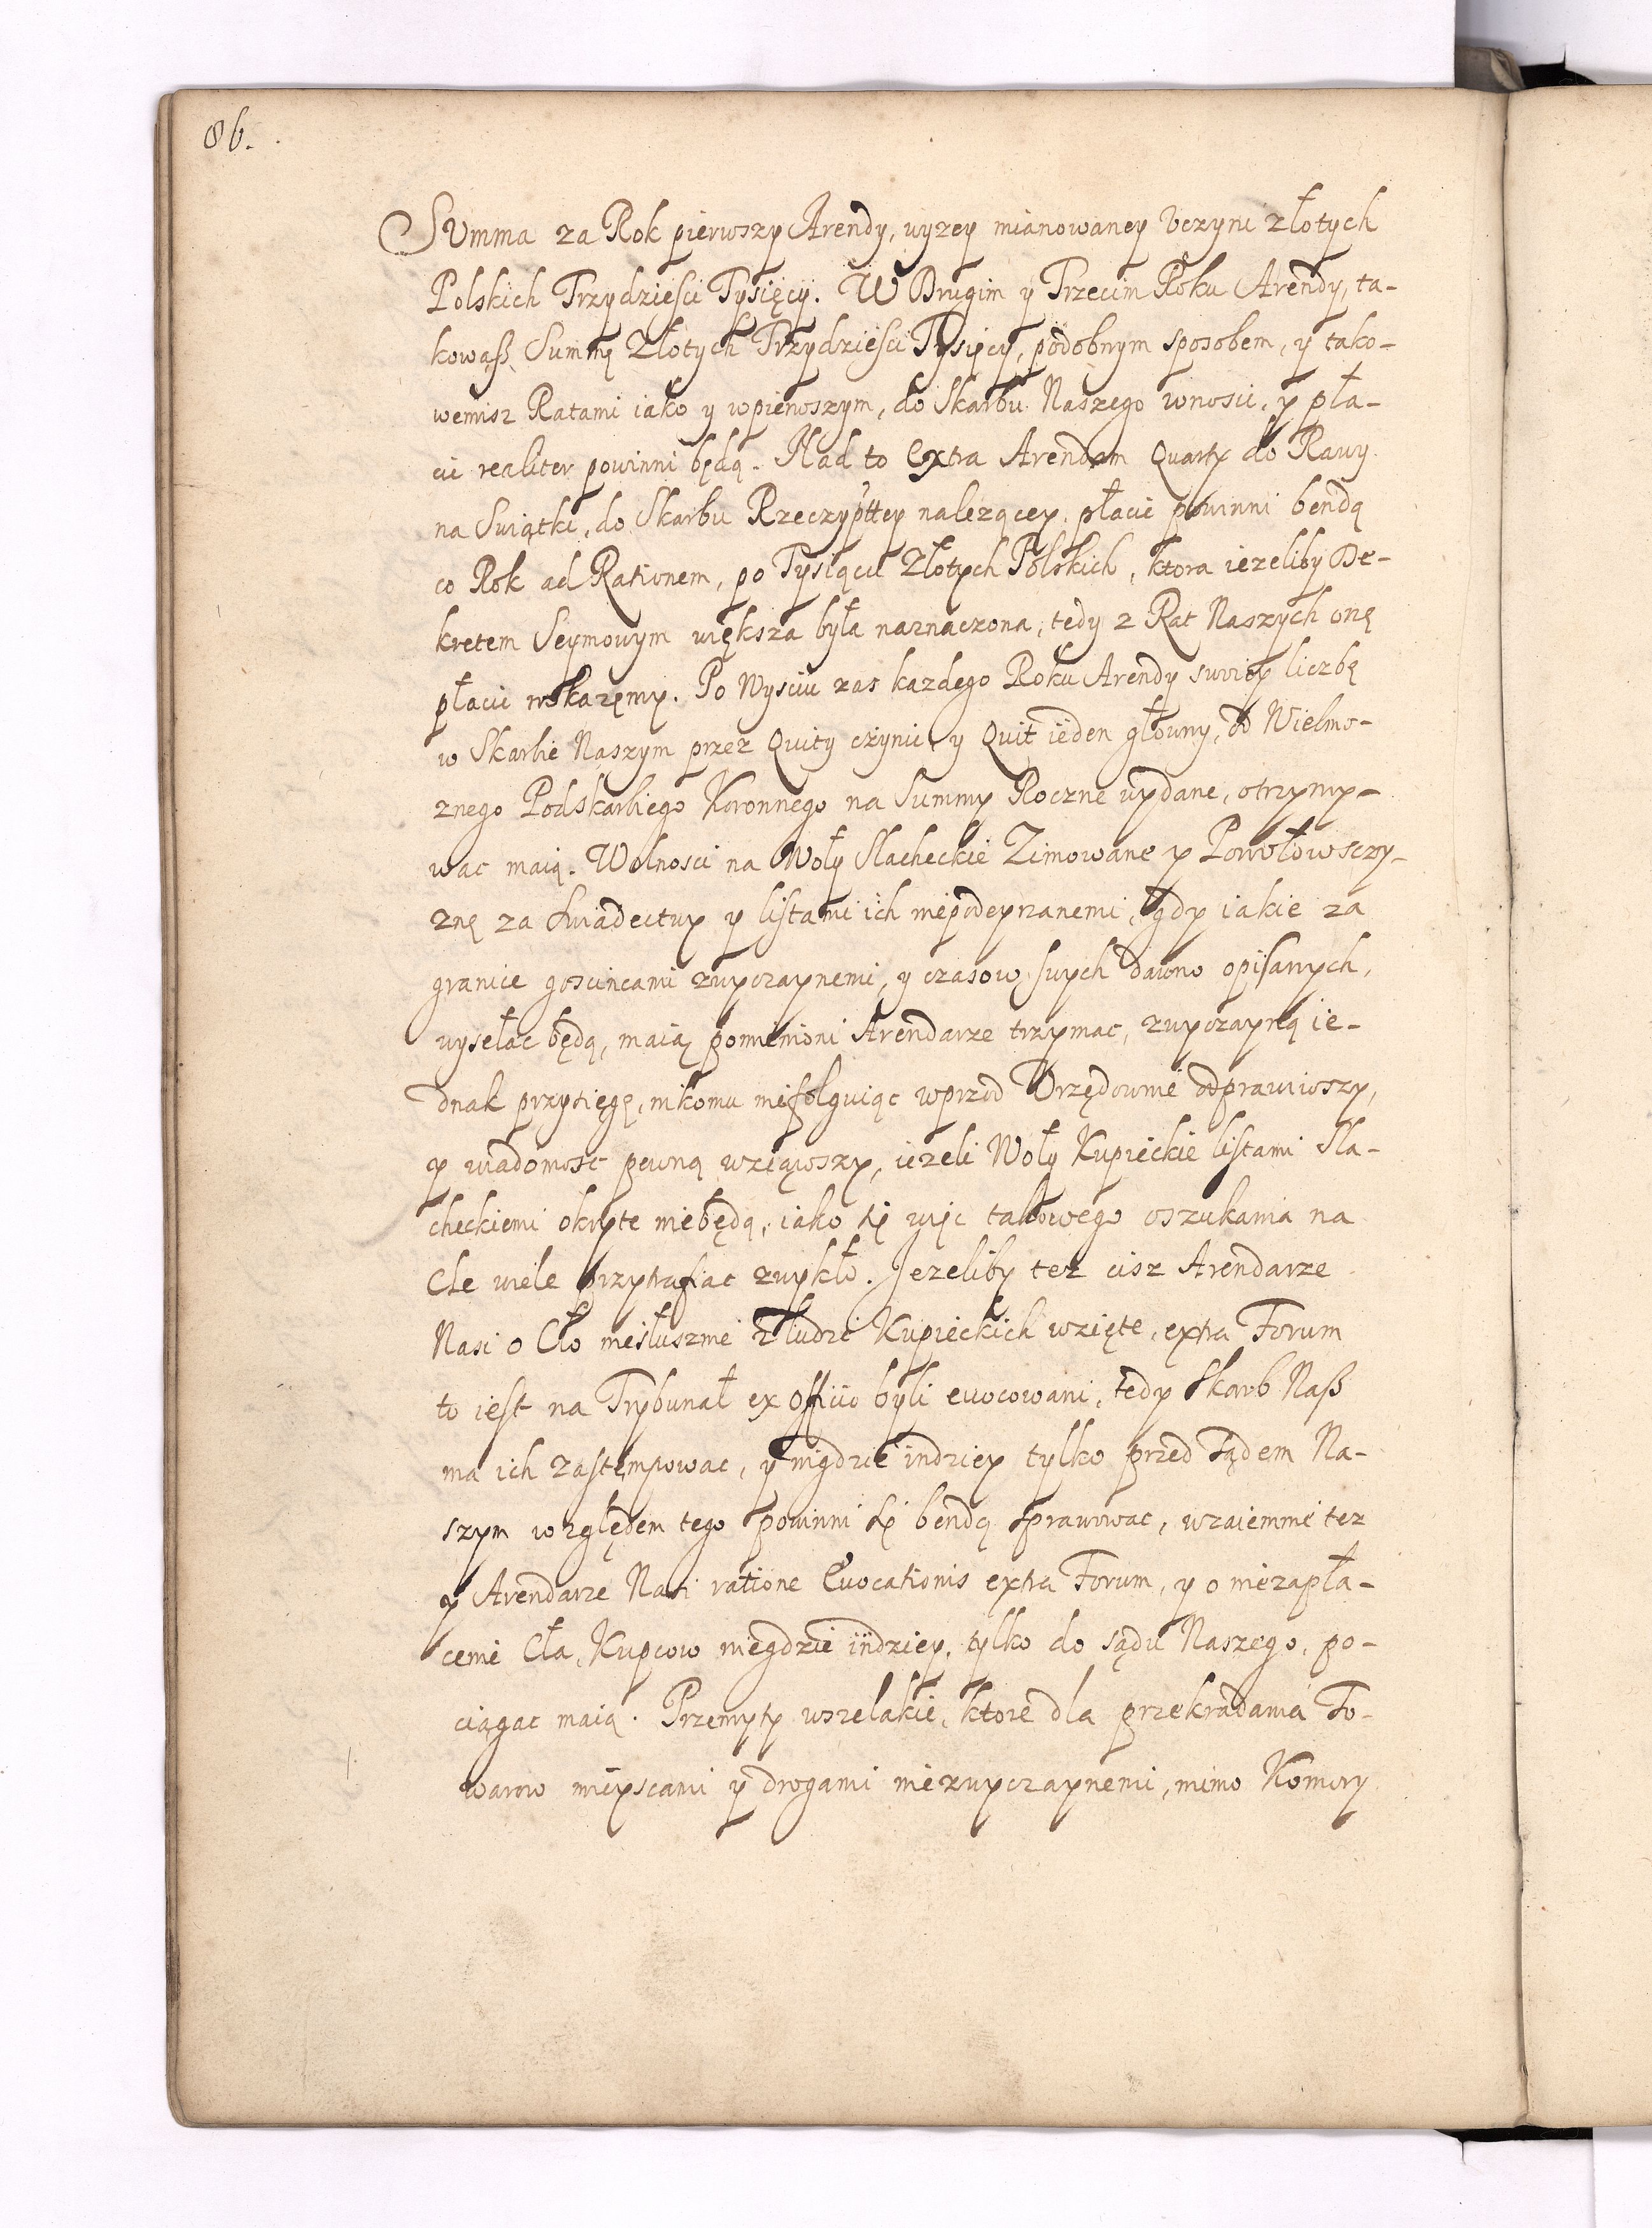 86.
SVmma za Rok pierwszy Arendy, wyzey mianowaney Vczyni złotych
Polskich Trzydziesci Tysięcy. W Drugim y Trzecim Roku Arendy, ta-
kowąß Summę Złotych Trzydziesci Tysięcy, podobnym sposobem, y tako-
wemisz Ratami iako y wpierwszym, do Skarbu Naszego wnosic, y pła-
cic realiter powinni będą. Nad to Extra Arendam Quarty do Rawy
na Swiątki, do Skarbu Rzeczyptтey nalezącey płacic powinni bendą
co Rok ad Rationem, po Tysiącu Złotych Polskich, ktora iezeliby De-
kretem Seymowym większa była naznaczona, tedy z Rat Naszych onę
płacic wskazemy. Po Wysciu zas kazdego Roku Arendy swoiey liczbę
w Skarbie Naszym przez Quity czynic, y Quit ieden głowny, od Wielmo-
znego Podskarbiego Koronnego na Summy Roczne wydane, otrzymy-
wac maią. Wolnosci na Woły Slacheckie Zimowane y Powołowsczy-
znę za Swiadectwy y listami ich niepodeyrzanemi, gdy iakie za
granice goscincami zwyczaynemi, y czasow swych dawno opisanych,
wysełac będą, maią pomienioni Arendarze trzymac, zwyczayną ie-
dnak przysięgę, nikomu niefolguiąc wprzod Vrzędownie odprawiwszy,
y wiadomosc pewną wziąwszy, iezeli Woły Kupieckie listami Sla-
checkiemi okryte niebędą, iako się więc takowego oszukania na
Cle wiele przytrafiac zwykło. Jezeliby tez cisz Arendarze
Nasi o Cło niesłusznie z ludzi Kupieckich wzięte, extra Forum
to iest na Trybunał ex Officio byli evocowani, tedy Skarb Naß
ma ich zastempowac, y nigdzie indziey tylko przed Sądem Na-
szym względem tego powinni się bendą sprawowac, wzaiemnie tez
y Arendarze Nasi ratione Evocationis extra Forum, y o niezapła-
cenie Cła, Kupcow niegdzie indziey, tylko do sądu Naszego, po-
ciągac maią. Przemyty wszelakie, ktore dla przekradania To-
warow mieyscami y drogami niezwyczaynemi, mimo Komory